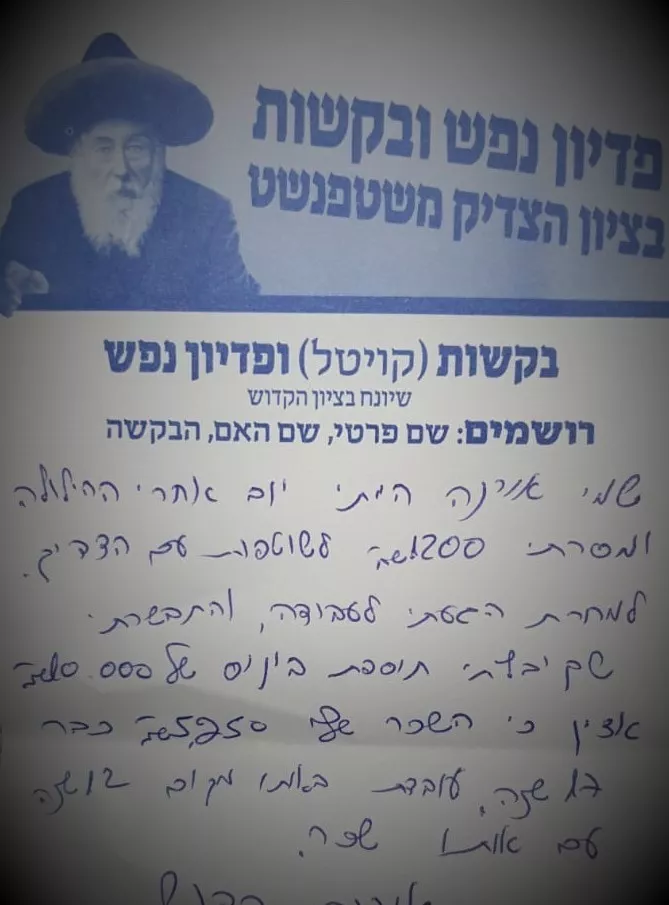 פדיון נפש ובקשות
בציון הצדיק משטפנשט
בקשות (קויטל) ופדיון נפש
שיונח בציון הקדוש
רושמים: שם פרטי, שם האם, הבקשה
שמי אורנה הייתי יום אחרי ההילולה
ומסרתי 1200 ש"ח לשותפות עם הצדיק.
למחרת הגעתי לעבודה, והתבשרתי
שקיבלתי תוספת בונוס של 10.000 ש"ח
אציין כי השכר שלי 5,250 ש"ח כבר
שנה, עובדת באותו מקום 12 שנה
עם אותו שכר.